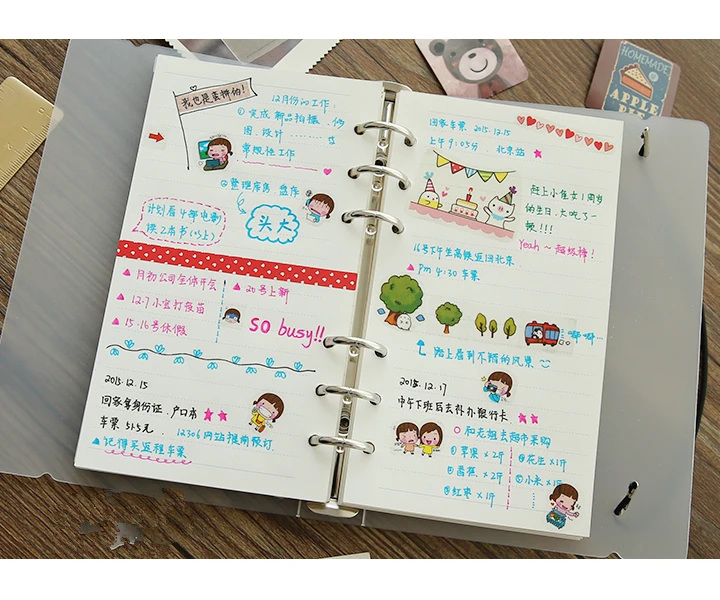 我也是蛮拼的!
12月份的工作:
①完成新品拍摄、修
图、设计……等
常规性工作
②整理库房 盘存
头大
计划看4部电影
读2本书(以上)
▲月初公司全体开会
▲12.7小宝打疫苗
▲15.16号休假
▲20号上新
so busy!!
2015.12.15
回家带身份证、户口本
车票:515元
12306网站提前预订
▲记得买返程车票
回家车票 2015.12.15
上午9:05分 北京站
赶上小侄女1周岁
的生日,大吃了一
顿!!!
Yeah~超炫糖!
16号下午坐高铁返回北京
▲pm 4:30 车票
嘟嘟…
路上看到不错的风景
2015.12.17
中午下班后去补办银行卡
○和老姐去超市采购
①苹果×2斤
②香蕉×2斤
③红枣×1斤
④花生×1斤
⑤小米×1斤
HOMEMADE
APPLE
PIE